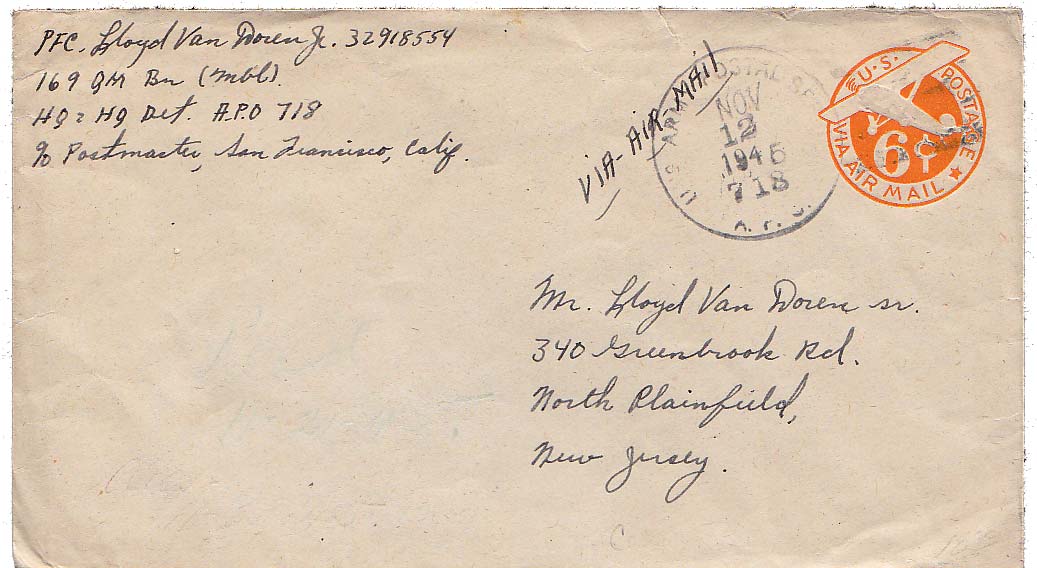 PFC. Lloyd Van Doren Jr. 32918554
169 QM Bn (Mbl).
HQ & HQ Det. A.P.O 718
c/o Postmaster, San Francisco, Calif.
VIA-AIR-MAIL
U.S. ARMY POSTAL SE
NOV
12
1945
718
A. P. O.
U.S. POSTAGE
6¢
VIA AIR MAIL
Mr. Lloyd Van Doren sr.
340 Greenbrook Rd.
North Plainfield,
New Jersey.